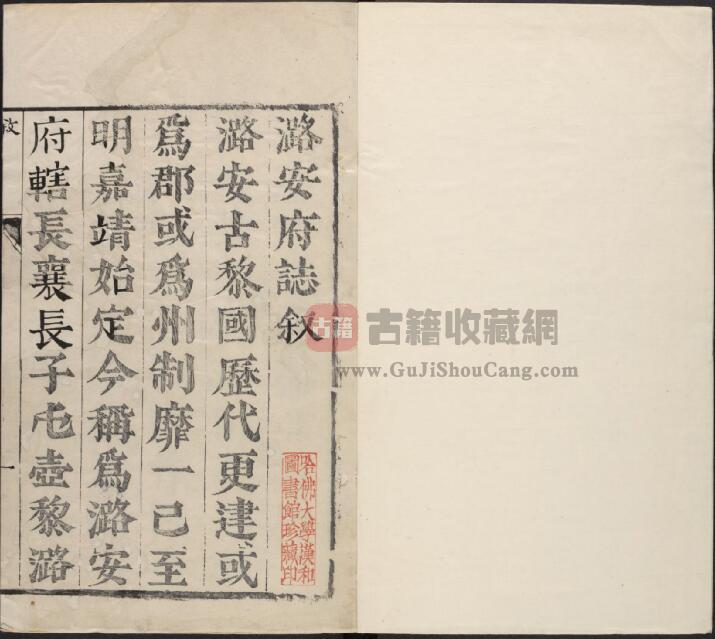 潞安府誌敘
潞安古黎國歷代更建或
爲郡或爲州制靡一己至
明嘉靖始定今稱爲潞安
府轄長襄長子屯壺黎潞
一
哈佛大學漢和
圖書館珍藏印
古籍
古籍收藏網
www.GuJiShouCang.com